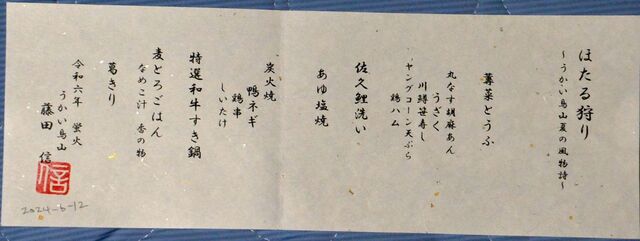 ほたる狩り
～うかい鳥山夏の風物詩～
蓴菜とうふ
丸なす胡麻あん
うざく
川鱒笹寿し
ヤングコーン天ぷら
鶏ハム
佐久鯉洗い
あゆ塩焼
炭火焼
鴨ネギ
鶏串
しいたけ
特選和牛すき鍋
麦とろごはん
なめこ汁 香の物
葛きり
令和六年 蛍火
うかい鳥山
藤田 信
信
2024-6-12